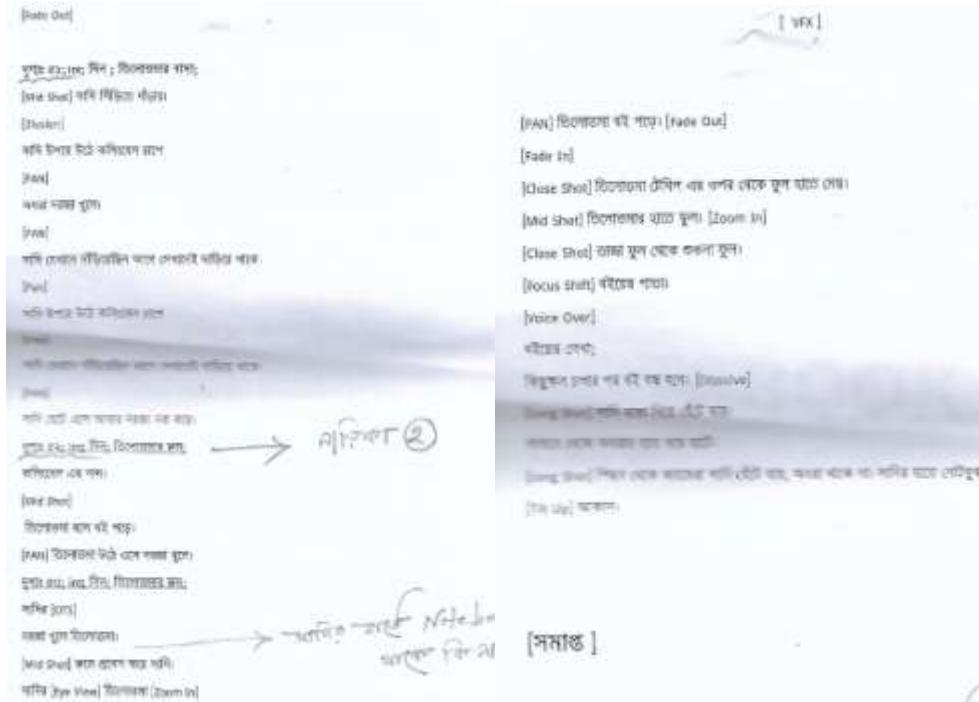 [Fade Out]
দৃশ্যঃ ৫১; Int; দিন ; তিলোত্তমার বাসা;
[Mid Shot] সানি সিঁড়িতে দাঁড়ায়।
সানি উপরে উঠে কলিংবেল চাপে
[PAN]
অথরা দরজা খুলে।
[PAN]
সানি যেখানে দাঁড়িয়েছিল আগে সেখানেই দাড়িয়ে থাকে
[Pan]
সানি উপরে উঠে কলিংবেল চাপে
সানি যেখানে দাঁড়িয়েছিল আগে সেখানেই দাড়িয়ে থাকে
সানি হেটে এসে আবার দরজা নক করে।
দৃশ্যঃ ৫২; Int; দিন; তিলোত্তমার রুম;
নায়িকা ②
কলিংবেল এর শব্দ।
[Mid Shot]
তিলোত্তমা বসে বই পড়ে।
[PAN] তিলোত্তমা উঠে এসে দরজা খুলে।
দিন; তিলোত্তমার রুম;
সানির [OTS]
দরজা খুলে তিলোত্তমা।
সানির হাতে
থাকে কি না
[Mid Shot] রুমে প্রবেশ করে সানি।
সানির [Eye View] তিলোত্তমা [Zoom In]
[ VFX ]
[PAN] তিলোত্তমা বই পড়ে। [Fade Out]
[Fade In]
[Close Shot] তিলোত্তমা টেবিল এর ওপর থেকে ফুল হাতে নেয়।
[Mid Shot] তিলোত্তমার হাতে ফুল। [Zoom In]
[Close Shot] তাজা ফুল থেকে শুকনা ফুল।
[Focus Shift] বইয়ের পাতা।
[Voice Over]
বইয়ের লেখা;
কিছুক্ষন চলার পর বই বন্ধ হবে। [Dissolve]
[Long Shot] সানি রাস্তা দিয়ে হেঁটে যায়।
[Long Shot] পিছন থেকে ক্যামেরা সানি হেঁটে যায়, অথরা থাকে না। সানির হাতে
[Tilt Up] আকাশ।
[সমাপ্ত ]